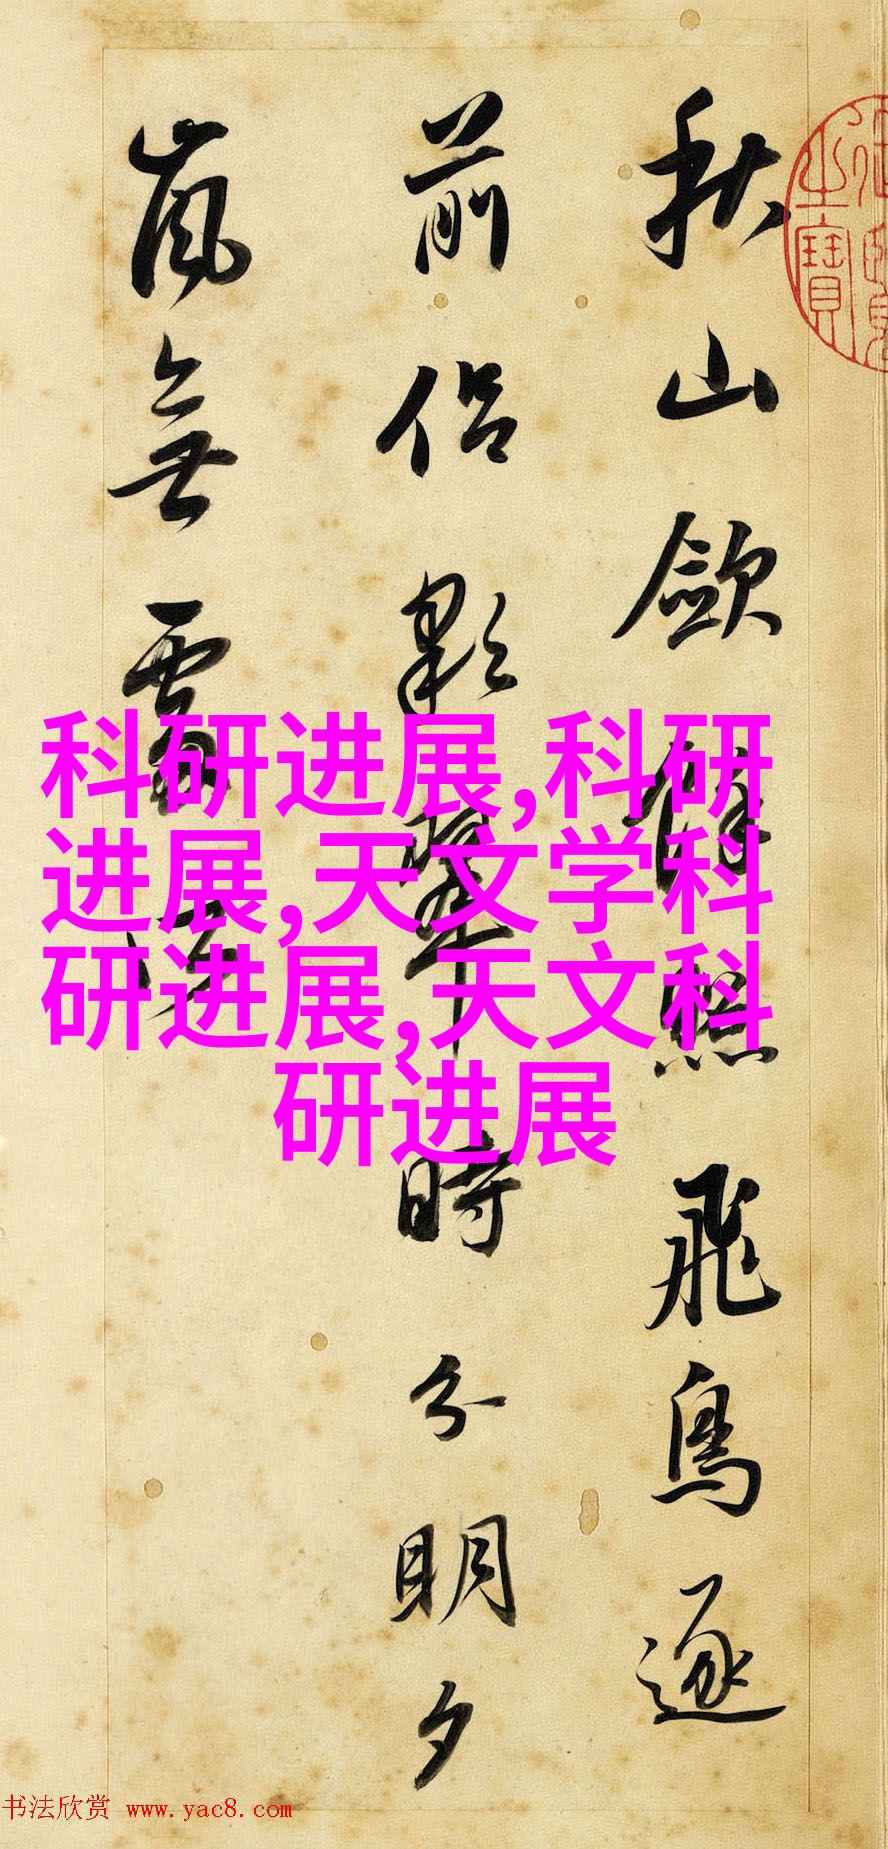 秋山斂餘照飛鳥逐
前侣彩翠時分明夕
嵐無處所
科研进展,科研
进展,天文学科
研进展,天文科
研进展
书法欣赏 www.yac8.com